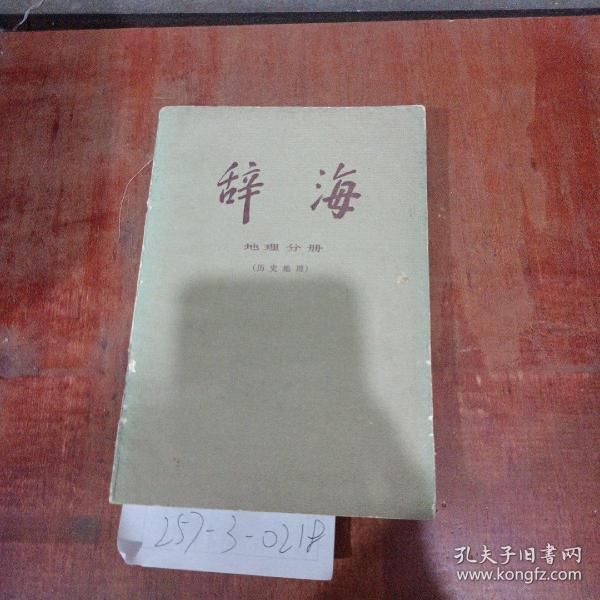 辞海
地理分册
(历史地理)
257-3-0218
孔夫子旧書网
www.kongfz.com